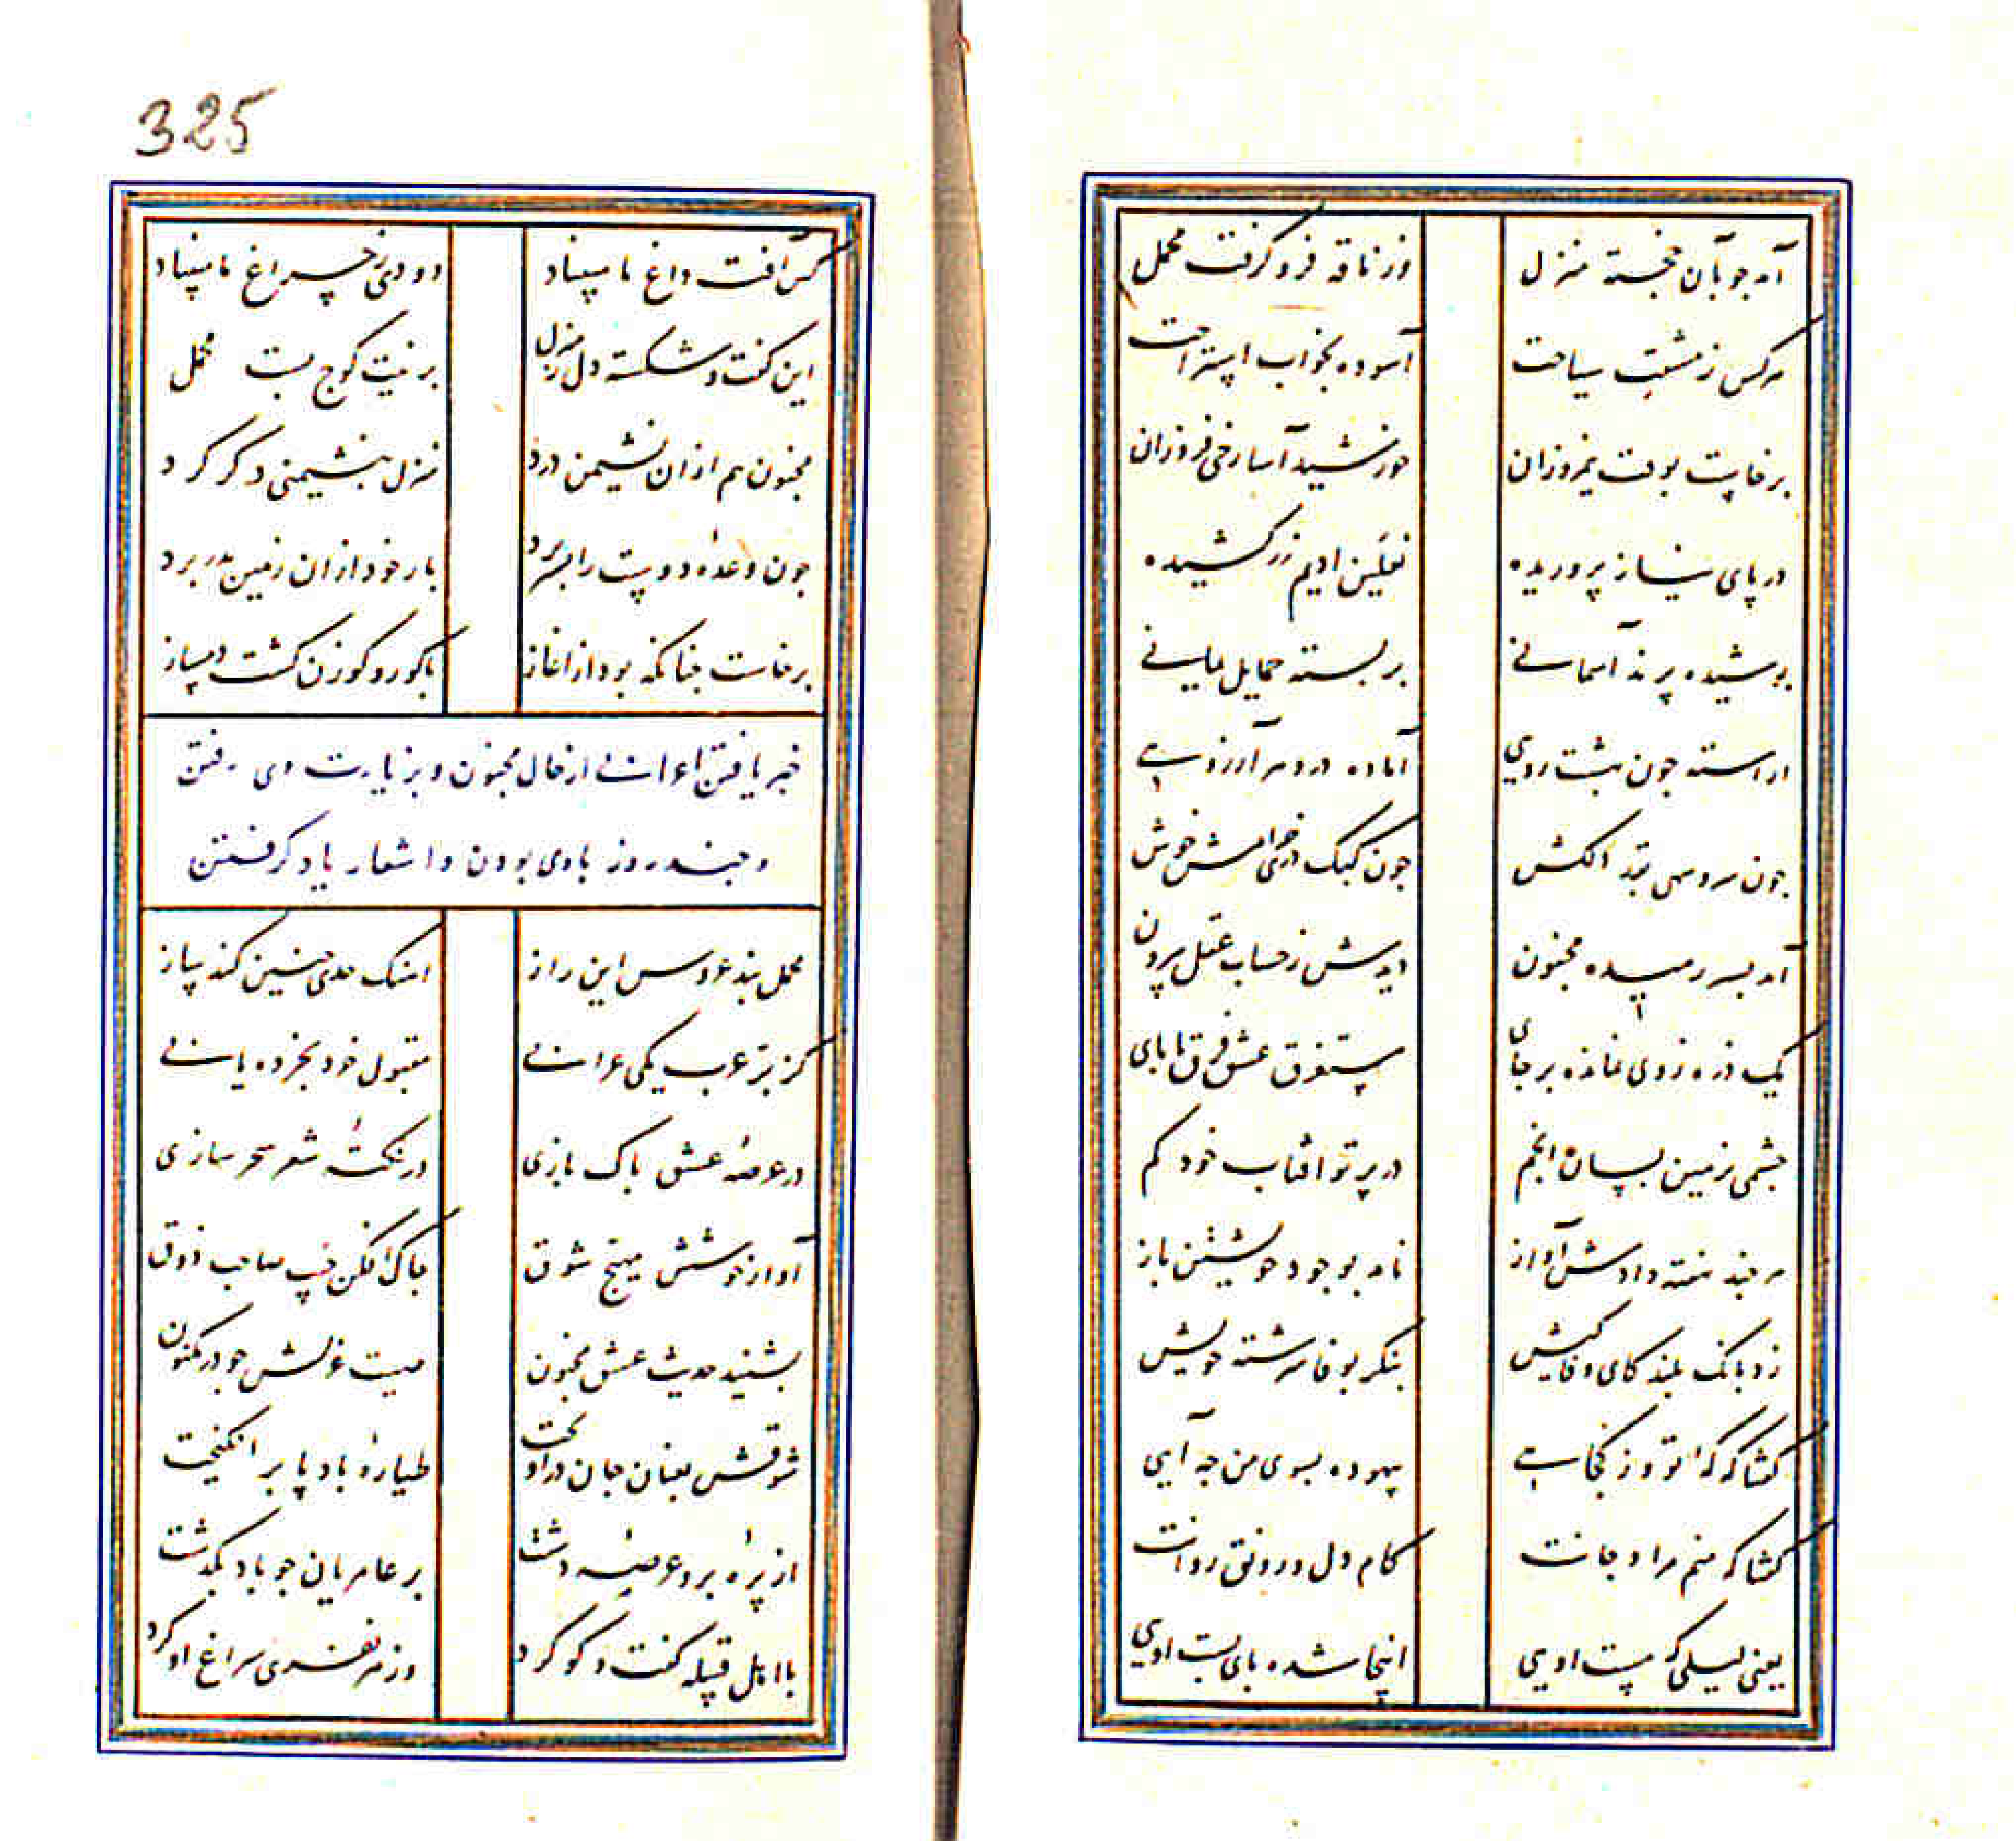 آمد جو بآن خجسته منزل وز ناقه فرو گرفت محمل
هرکس ز مشقت سیاحت آسوده بخواب استراحت
برخاست بوقت نیمروزان خورشید آسا رخی فروزان
در پای نیاز پروریده نعلین ادیم زر کشیده
پوشیده پرند آسمانے بر بسته حمایل یمانے
اراسته جون بهشت رویی آماده درو هر آرزویے
جون سرو سهی بقد دلکش جون کبک دری خرامش خوش
آمد بسر رمیده مجنون دیدش ز حساب عقل بیرون
یک ذره ز وی نمانده بر جای مستغرق عشق فرق تا پای
جشمی ز زمین بسان انجم در پرتو افتاب خود کم
هر جند نهفته دادش آواز نامد بوجود خویشتن باز
زد بانک بلند کای وفا کیش بنگر بوفا سرشته خویش
گفتا که که‌ای تو وز کجایے بیهوده بسوی من جه آیی
گفتا که منم مراد جانت کام دل و رونق روانت
یعنی لیلی که مست اویی اینجا شده پای بست اویی
325
کس آفت داغ ما مبیناد دودی ز چراغ ما مبیناد
این گفت و شکسته دل ز منزل بر نیت کوج بست محمل
مجنون هم ازان نشیمن درد منزل بنشیمنی دکر کرد
جون وعده دوست را بسر برد بار خود ازان زمین بدر برد
برخاست جنانکه بود از اغاز با گور و گوزن گشت دمساز
خبر یافتن اعرابے از حال مجنون و بزیارت وی رفتن
و جند روز با وی بودن و اشعار یاد کرفتن
محمل بند عروس این راز آهنک حدی جنین کند ساز
کز بر عرب یکی عرابے مقبول خرد بخرده یابے
در عرصه عشق پاک بازی در نکته شعر سحر سازی
آواز خوشش مهیج شوق جاک افکن جیب صاحب ذوق
بشنید حدیث عشق مجنون صیت غزلش جو در مکنون
شوقش بعنان جان دراویخت طیاره باد پا بر انگیخت
از پره برد عرصه دشت بر عامریان جو باد بگذشت
با اهل قبیله گفت و گو کرد وز هر نفری سراغ او کرد